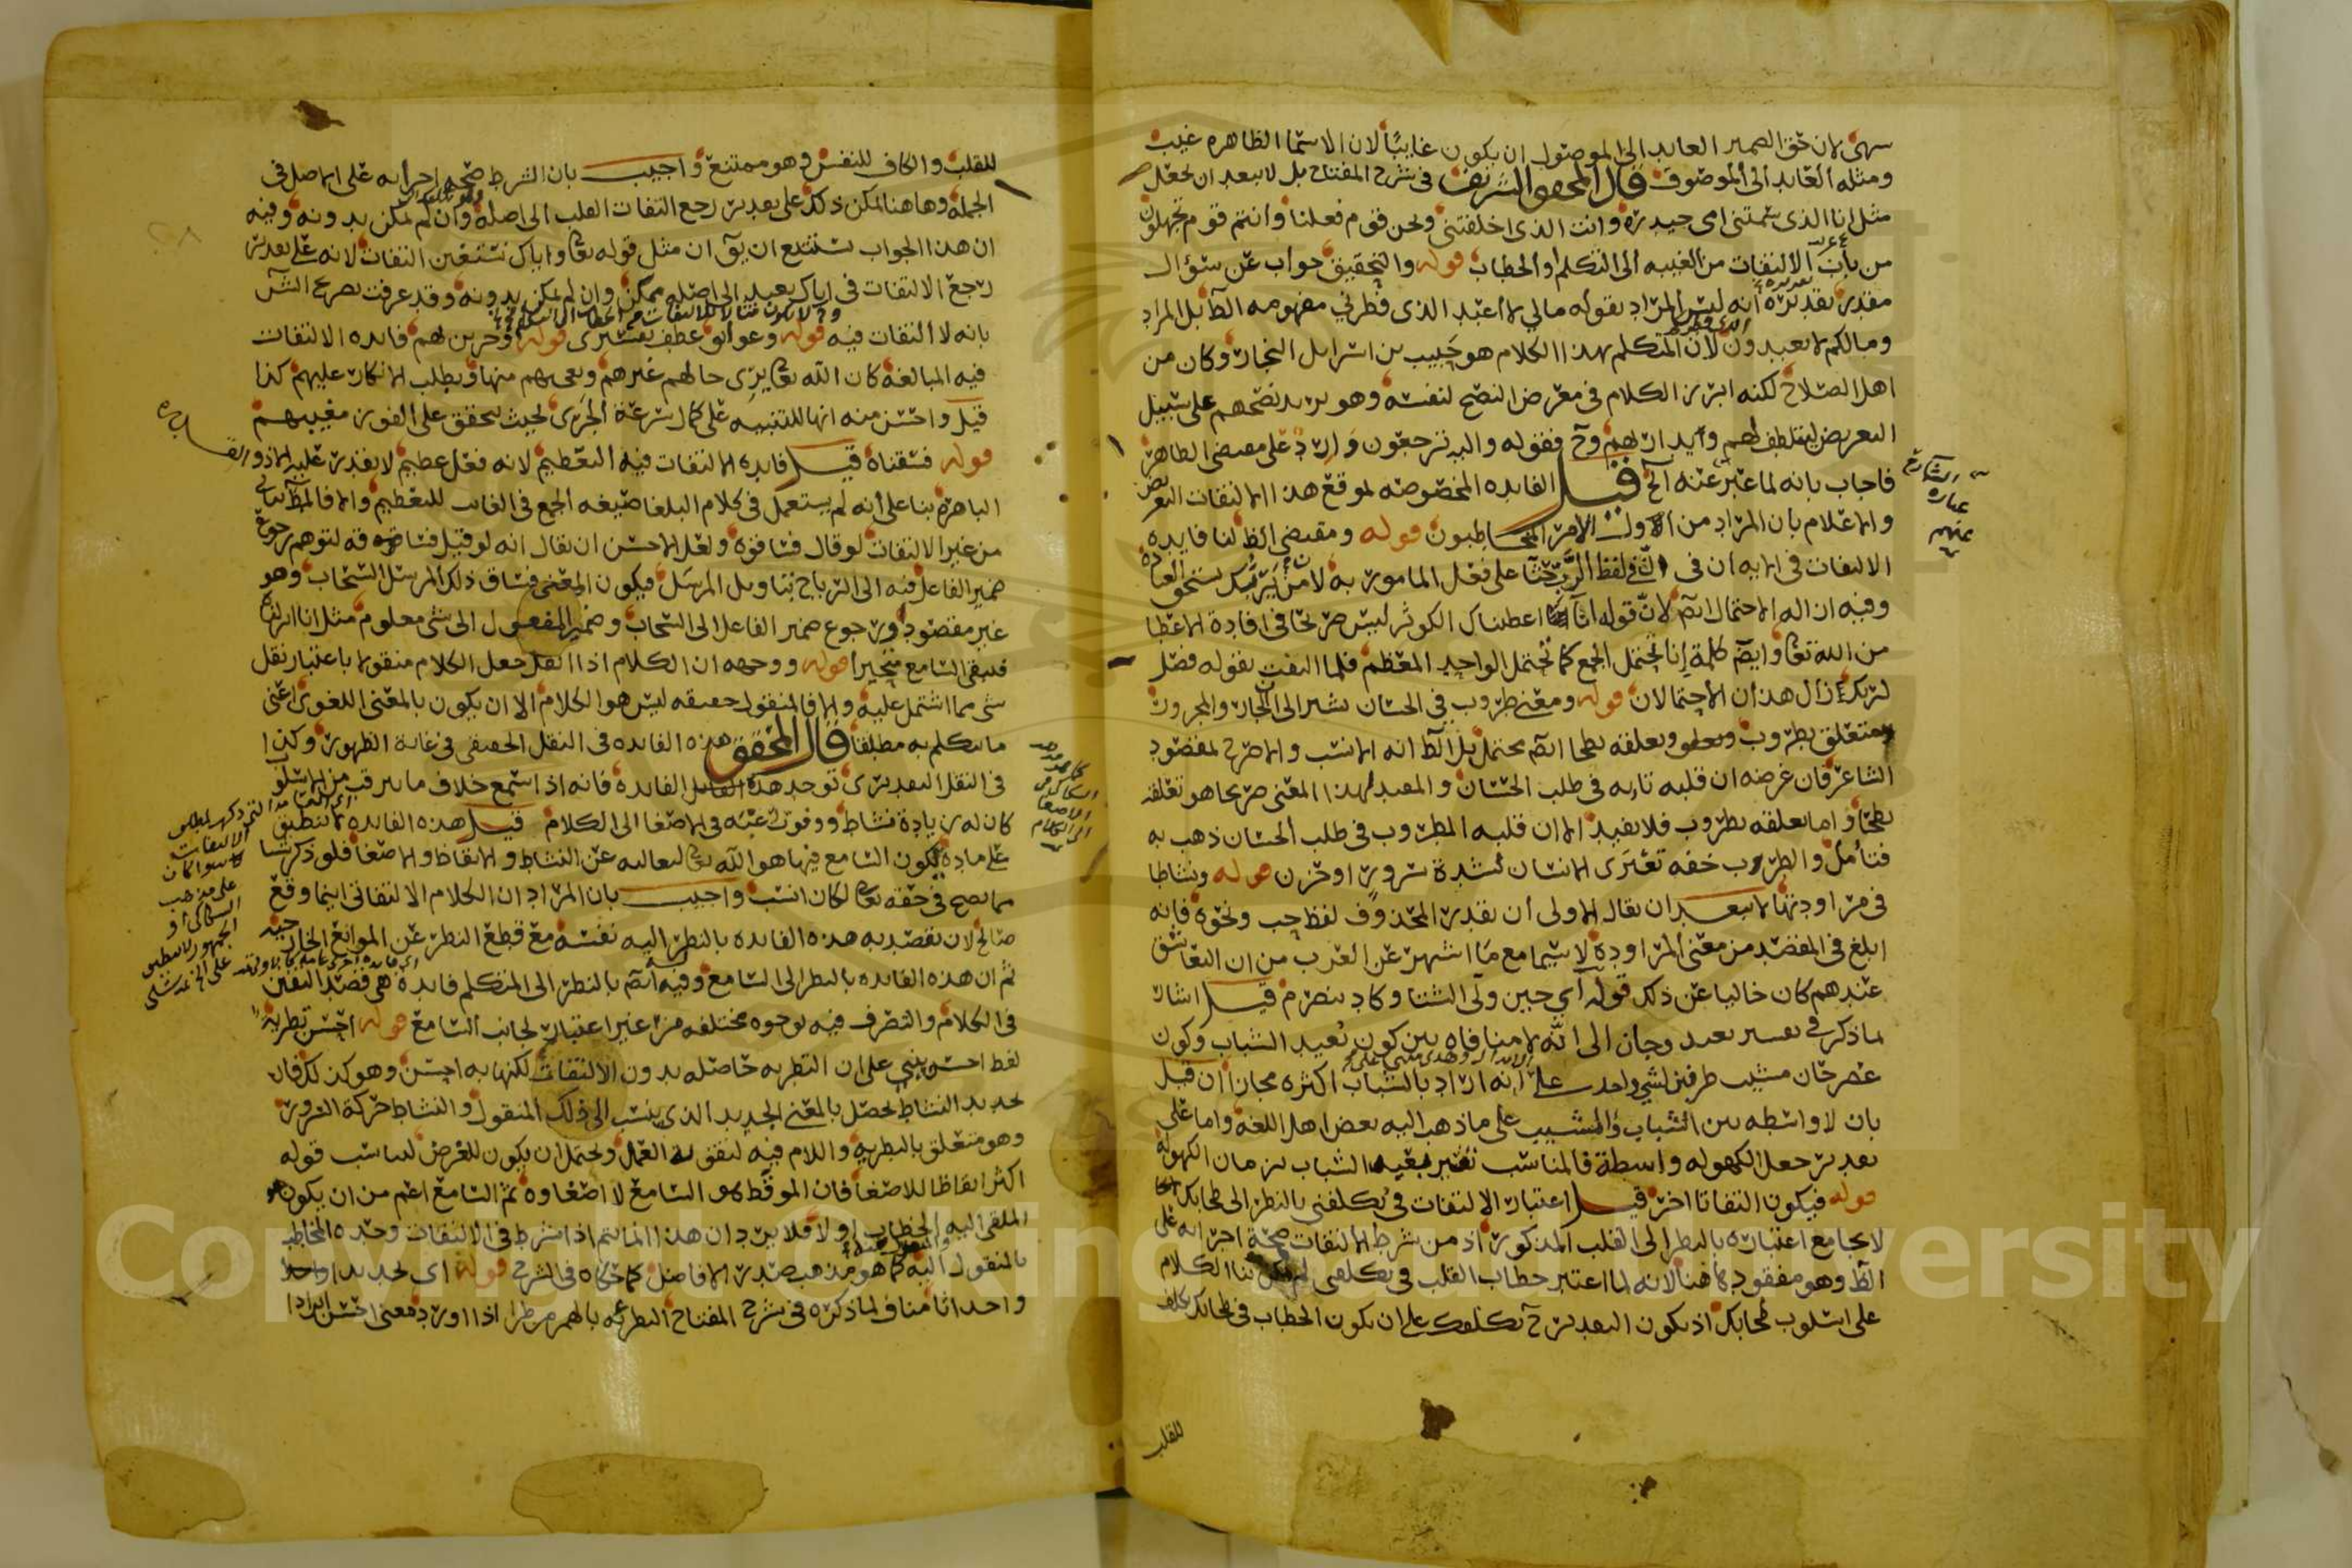 سهى لان حق الضمير العايد الى الموصول ان يكون غايبا لان الاسما الظاهره غيب
ومثله العايد الى الموصوف قال المحقق الشريف فى شرح المفتاح بل لا يبعد ان يجعل
مثل انا الذى سمتنى امى حيدره وانت الذى اخلفتنى ونحن قوم فعلنا وانتم قوم تجهلون
من باب الالتفات من الغيبه الى التكلم او الخطاب قوله والتحقيق جواب عن سؤال
مقدر تقديره انه ليس المراد بقوله مالي لا اعبد الذى فطرني مفهومه الظ بل المراد
ومالكم لا تعبدون لان المتكلم بهذا الكلام هو حبيب بن اسرايل النجار وكان من
اهل الصلاح لكنه ابرز الكلام فى معرض النصح لنفسه وهو يريد نصحهم على سبيل
التعريض ليتلطف لهم ففقوله واليه ترجعون وارد على مقتضى الظاهر
فاجاب بانه لما عبر عنه الخ قيل الفايده المخصوصه لموقع هذا الالتفات التعريض
والاعلام بان المراد من الاول الامر المخاطبون قوله ومقتضى الظ لنا فايده
الالتفات فى الايه ان فى لفظ الرب حثا على فعل المامور به لان من يربك يستحق العباده
وفيه ازاله الاحتمال ايضا لان قوله انا اعطيناك الكوثر ليس صريحا فى افادة الاعطا
من الله تعا وايضا كلمة انا تحتمل الجمع كما تحتمل الواحد المعظم فلما التفت بقوله فصل
لربك زال هذان الاحتمالان قوله ومعنى طروب فى الحسان يشير الى ان الجار والمجرور
متعلق بطروب وتعلقه بطحا ايضا محتمل بل الظ انه الانسب والاصرح لمقصود
الشاعر فان غرضه ان قلبه تايه فى طلب الحسان والمفيد لهذا المعنى صريحا هو تعلقه
بطحا واما تعلقه بطروب فلا يفيد الا ان قلبه المطروب فى طلب الحسان ذهب به
فتامل والطرب خفه تعترى الانسان لشدة سرور او حزن قوله ونشاطا
فى مراودتها لا يبعد ان يقال الاولى ان يقدر المحذوف لفظ حب ونحوه فانه
ابلغ فى المقصد من معنى المراودة لا سيما مع ما اشتهر عن العرب من ان التعاشق
عندهم كان خاليا عن ذلك قوله اي حين ولى الشباب وكاد ينصرم قيل اشار
لما ذكر فى تفسير بعيد وحان الى انه لا منافاه بين كون بعيد الشباب وكون
عصر حان مشيب طرفين لشي واحد على انه اراد بالشباب اكثره مجازا ان قيل
بان لا واسطه بين الشباب والمشيب على ما ذهب اليه بعض اهل اللغه واما على
تقدير جعل الكهوله واسطة فالمناسب تفسير بعيد الشباب بزمان الكهوله
قوله فيكون التفاتا اخر قيل اعتبار الالتفات فى يكلفنى بالنظر الى طحا بك
لا يجامع اعتباره بالنظر الى القلب المذكور اذ من شرط الالتفات صحة اجرائه على
الظ وهو مفقود هاهنا لانه لما اعتبر خطاب القلب فى تكلفى لم يكن بنا الكلام
على اسلوب طحا بك اذ يكون التقدير ح تكلفك على ان يكون الخطاب فى طحا بك
للقلب
للقلب والكاف للنفس وهو ممتنع واجيب بان الشرط صحه اجرائه على الاصل فى
الجمله وهاهنا لمكن ذلك على تقدير رجع التفات القلب الى اصله وان لم يمكن بدونه وفيه
ان هذا الجواب يستتبع ان يق ان مثل قوله تعا واياك نستعين التفات لانه على تقدير
رجع الالتفات فى اياك نعبد الى اصله ممكن وان لم يمكن بدونه وقد عرفت تصريح الش
بانه لا التفات فيه قوله وعوانق عطف قوله وجرين بهم فايده الالتفات
فيه المبالغه كان الله تعا يرى حالهم غيرهم ويعجبهم منها ويطلب الانكار عليهم كذا
قيل واحسن منه انها للتنبيه على كمال سرعة الجرى بحيث يتحقق على الفور مغيبهم
قوله فسقناه قيل فايده الالتفات فيه التعظيم لانه فعل عظيم لا يقدر عليه الا ذو القدره
الباهره بنا على انه لم يستعمل فى كلام البلغا صيغه الجمع فى الغايب للتعظيم
من غير الالتفات لو قال فساقوه ولعل الاحسن ان يقال انه لو قيل فساقه لتوهم رجوع
ضمير الفاعل فيه الى الرياح بتاويل المرسل فيكون المعنى فساق ذلك المرسل السحاب وهو
غير مقصود ورجوع ضمير الفاعل الى السحاب وضمير المفعول الى شى معلوم مثل انا انزلناه
فلبقى السامع متحيرا قوله ووجهه ان الكلام اذا نقل جعل الكلام منقولا باعتبار نقل
شى مما اشتمل عليه والا فالمنقول حقيقه ليس هو الكلام الا ان يكون بالمعنى اللغوى اعنى
ما يتكلم به مطلقا قال المحقق هذه الفايده فى النقل الحقيقى فى غاية الظهور وكذا
فى النقل التقديرى توجد هذه الفايده فانه اذا سمع خلاف ما يترقب من الاسلوب
كان له زيادة نشاط ووفور رغبته فى الاصغا الى الكلام قيل هذه الفايده لا تنطبق
على مادة يكون السامع فيها هو الله تعا لتعاليه عن النشاط والايقاظ والاصغا فلو ذكر شيا
مما يصح فى حقه تعا لكان انسب واجيب بان المراد ان الكلام الالتفاتى اينما وقع
صالح لان يقصد به هذه الفايده بالنظر اليه نفسه مع قطع النظر عن الموانع الخارجيه
ثم ان هذه الفايده بالنظر الى السامع وفيه ايضا بالنظر الى المتكلم فايدة هى قصد التفنن
فى الكلام والتصرف فيه بوجوه مختلفه من غير اعتبار لجانب السامع قوله احسن تطرية
لفظ احسن يبنى على ان التطريه حاصله بدون الالتفات لكنها به احسن وهو كذلك فان
تجديد النشاط يحصل بالمعنى الجديد الذى ينسب الى ذلك المنقول والنشاط حركة السرور
وهو متعلق بالتطريه واللام فيه لتقويه العمل ويحتمل ان يكون للغرض ليناسب قوله
اكثر ايقاظا للاصغا فان الموقظ هو السامع لا اصغاوه ثم السامع اعم من ان يكون
الملقى اليه الخطاب او لا فلا يرد ان هذا انما يتم اذا شرط فى الالتفات وحده المخاطب
بالمنقول اليه كما هو مذهب صدر الافاضل كما حكاه فى الشرح قوله اى تجديدا
واحداثا مناف لما ذكره فى شرح المفتاح التطرئه بالهمز من طرا اذا ورد فمعنى احسن ايرادا